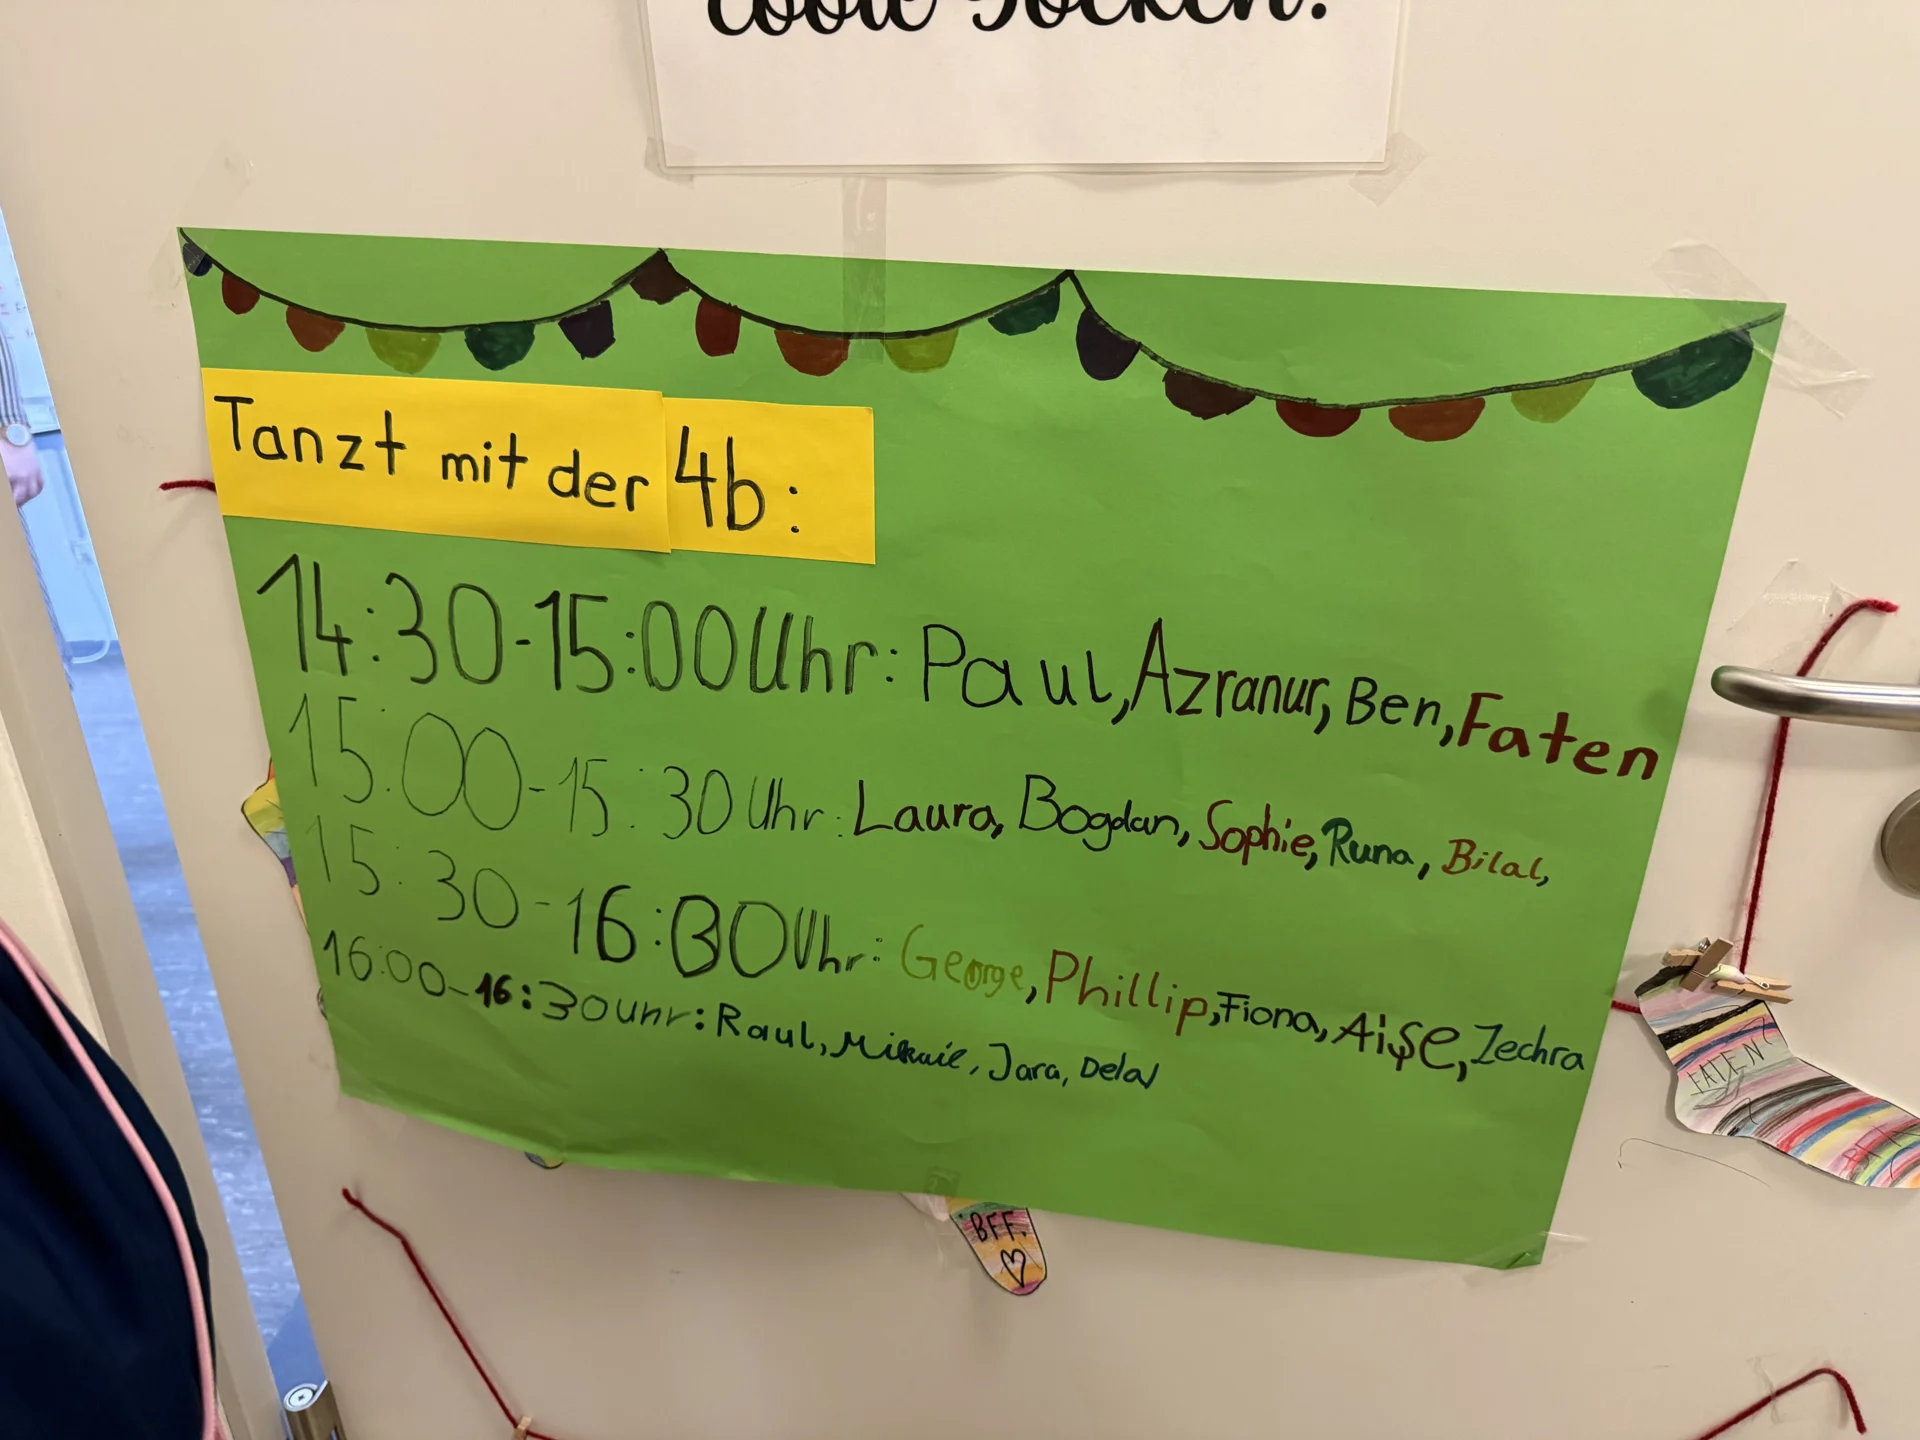 coole Socken!
Tanzt mit der 4b:
14:30-15:00 Uhr: Paul, Azranur, Ben, Faten
15:00-15:30 Uhr: Laura, Bogdan, Sophie, Runa, Bilal,
15:30-16:00 Uhr: George, Phillip, Fiona, Aişe, Zechra
16:00-16:30 uhr: Raul, Jara, Delal
FATEN
BFF.